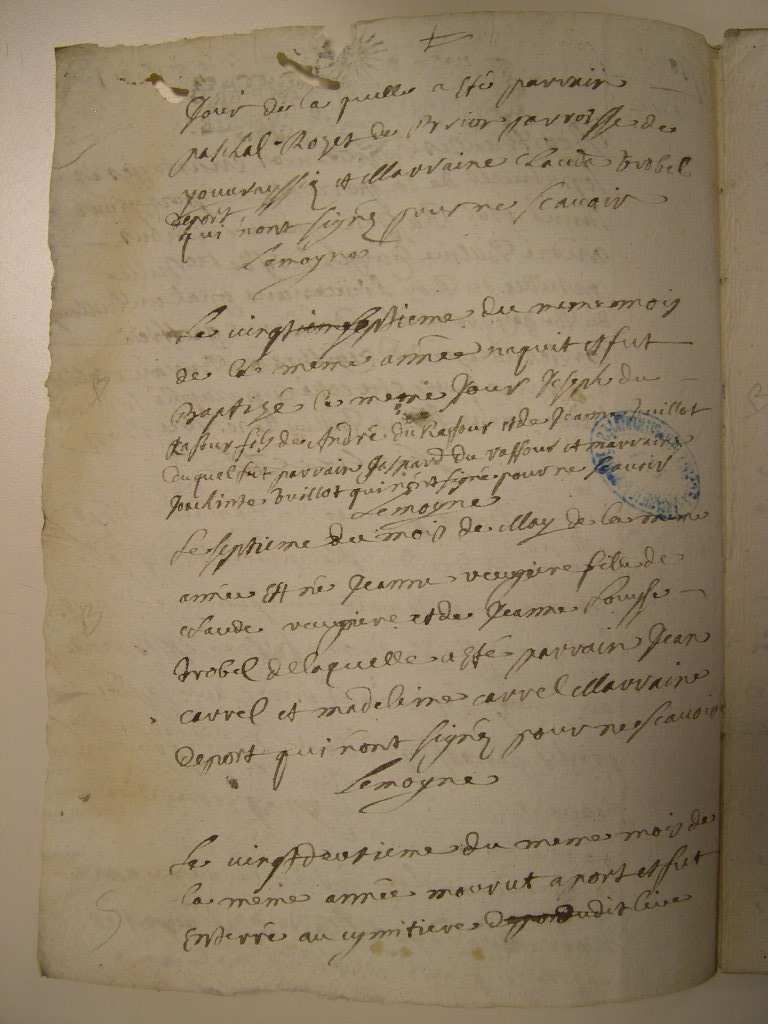 Jour de la quelle a esté parrain
paschal Rozet de Brion parroisse de
et Marraine Claude Trobel
Deport
qui n'ont signéz pour ne scavoir
Lemoyne
Le vingt septieme du meme mois
de la meme année naquit et fut
Baptizé le meme Jour Joseph du
Raffour fils de André du Raffour et de Jeanne Buillot
duquel fut parrain Jaspard du raffour et marraine
Joachinte Buillot qui n'ont signé pour ne scavoir
Lemoyne
Le septieme du mois de May de la meme
année est né Jeanne veugiere fille de
Claude veugiere et de Jeanne Louysse
Trobel de laquelle a esté parrain Jean
carrel et madeleine carrel Marraine
Deport qui n'ont signéz pour ne scavoir
Lemoyne
Le vingt deutieme du meme mois de
la meme année mourut a port et fut
Enterré au cymitiere dudit lieu